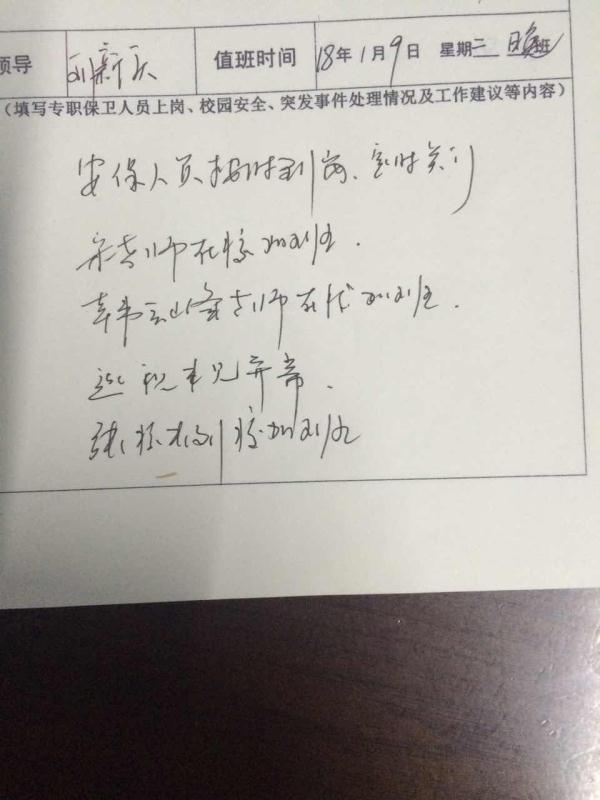 领导 刘新天 值班时间 18年1月9日 星期二 晚班
(填写专职保卫人员上岗、校园安全、突发事件处理情况及工作建议等内容)
安保人员按时到岗、定时关门
老师在校加班.
老师在校加班.
巡视未见异常.
张校长到校加班